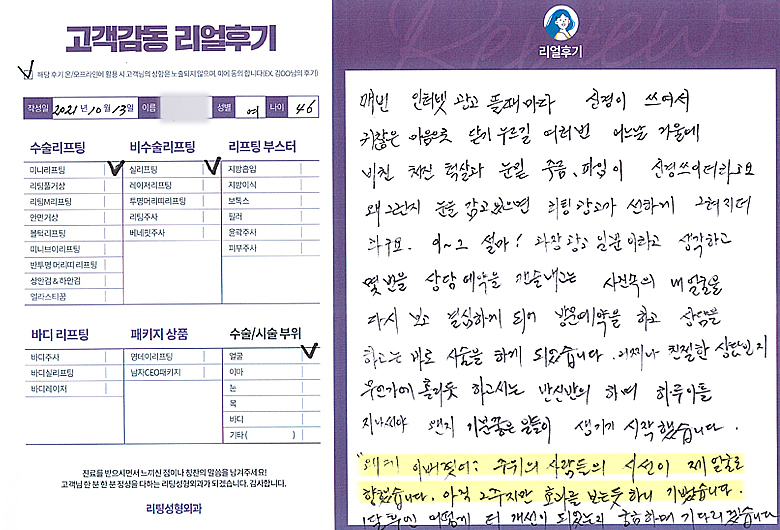 고객감동 리얼후기
해당 후기 온/오프라인에 활용 시 고객님의 성함은 노출되지 않으며, 이에 동의 합니다(EX. 김OO님의 후기)
작성일 2021년 10월 13일 이름 성별 여 나이 46
수술리프팅
미니리프팅
리팅풀거상
리팅M리프팅
안면거상
볼턱리프팅
미니브이리프팅
반투명 머리띠 리프팅
상안검 & 하안검
얼라스티꿈
비수술리프팅
실리프팅
레이저리프팅
투명머리띠리프팅
리팅주사
베네핏주사
리프팅 부스터
지방흡입
지방이식
보톡스
필러
윤곽주사
피부주사
바디 리프팅
바디주사
바디실리프팅
바디레이저
패키지 상품
원데이리프팅
남자CEO패키지
수술/시술 부위
얼굴
이마
눈
목
바디
기타 ( )
진료를 받으시면서 느끼신 점이나 칭찬의 말씀을 남겨주세요!
고객님 한 분 한 분 정성을 다하는 리팅성형외과가 되겠습니다. 감사합니다.
리팅성형외과
Review
리얼후기
매번 인터넷 광고 뜰때마다 신경이 쓰여서
귀찮은 마음으로 닫기 누르길 여러번 어느날 거울에
비친 처진 턱살과 눈밑 주름, 파임이 신경쓰이더라고요
왜 그런지 눈을 감고있으면 리팅 광고가 선하게 그려지더
라구요. 에~그 설마! 과장 광고 일뿐이라고 생각하고
몇번을 상담 예약을 캔슬내고는 사진속의 내 얼굴을
다시 보고 결심하게 되어 방문예약을 하고 상담을
하고는 바로 시술을 하게 되었습니다. 어찌나 친절한 상담인지
무언가에 홀리듯 하고서는 반신반의 하며 하루이틀
지나서야 왠지 기분좋은 일들이 생기기 시작했습니다.
이뻐졌어? 주위의 사람들의 시선이 제 얼굴로
향했습니다. 아직 2주지만 효과를 보는듯 하니 기뻤습니다.
1달 후에 어떻게 더 개선이 되었는지 궁금하며 기다리겠습니다